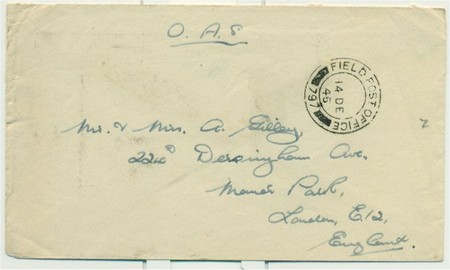 O. A. S
FIELD POST OFFICE
14 DE
45
797
Mr. & Mrs. A.
Dersingham Ave.
Manor Park,
London, E.12.
England.